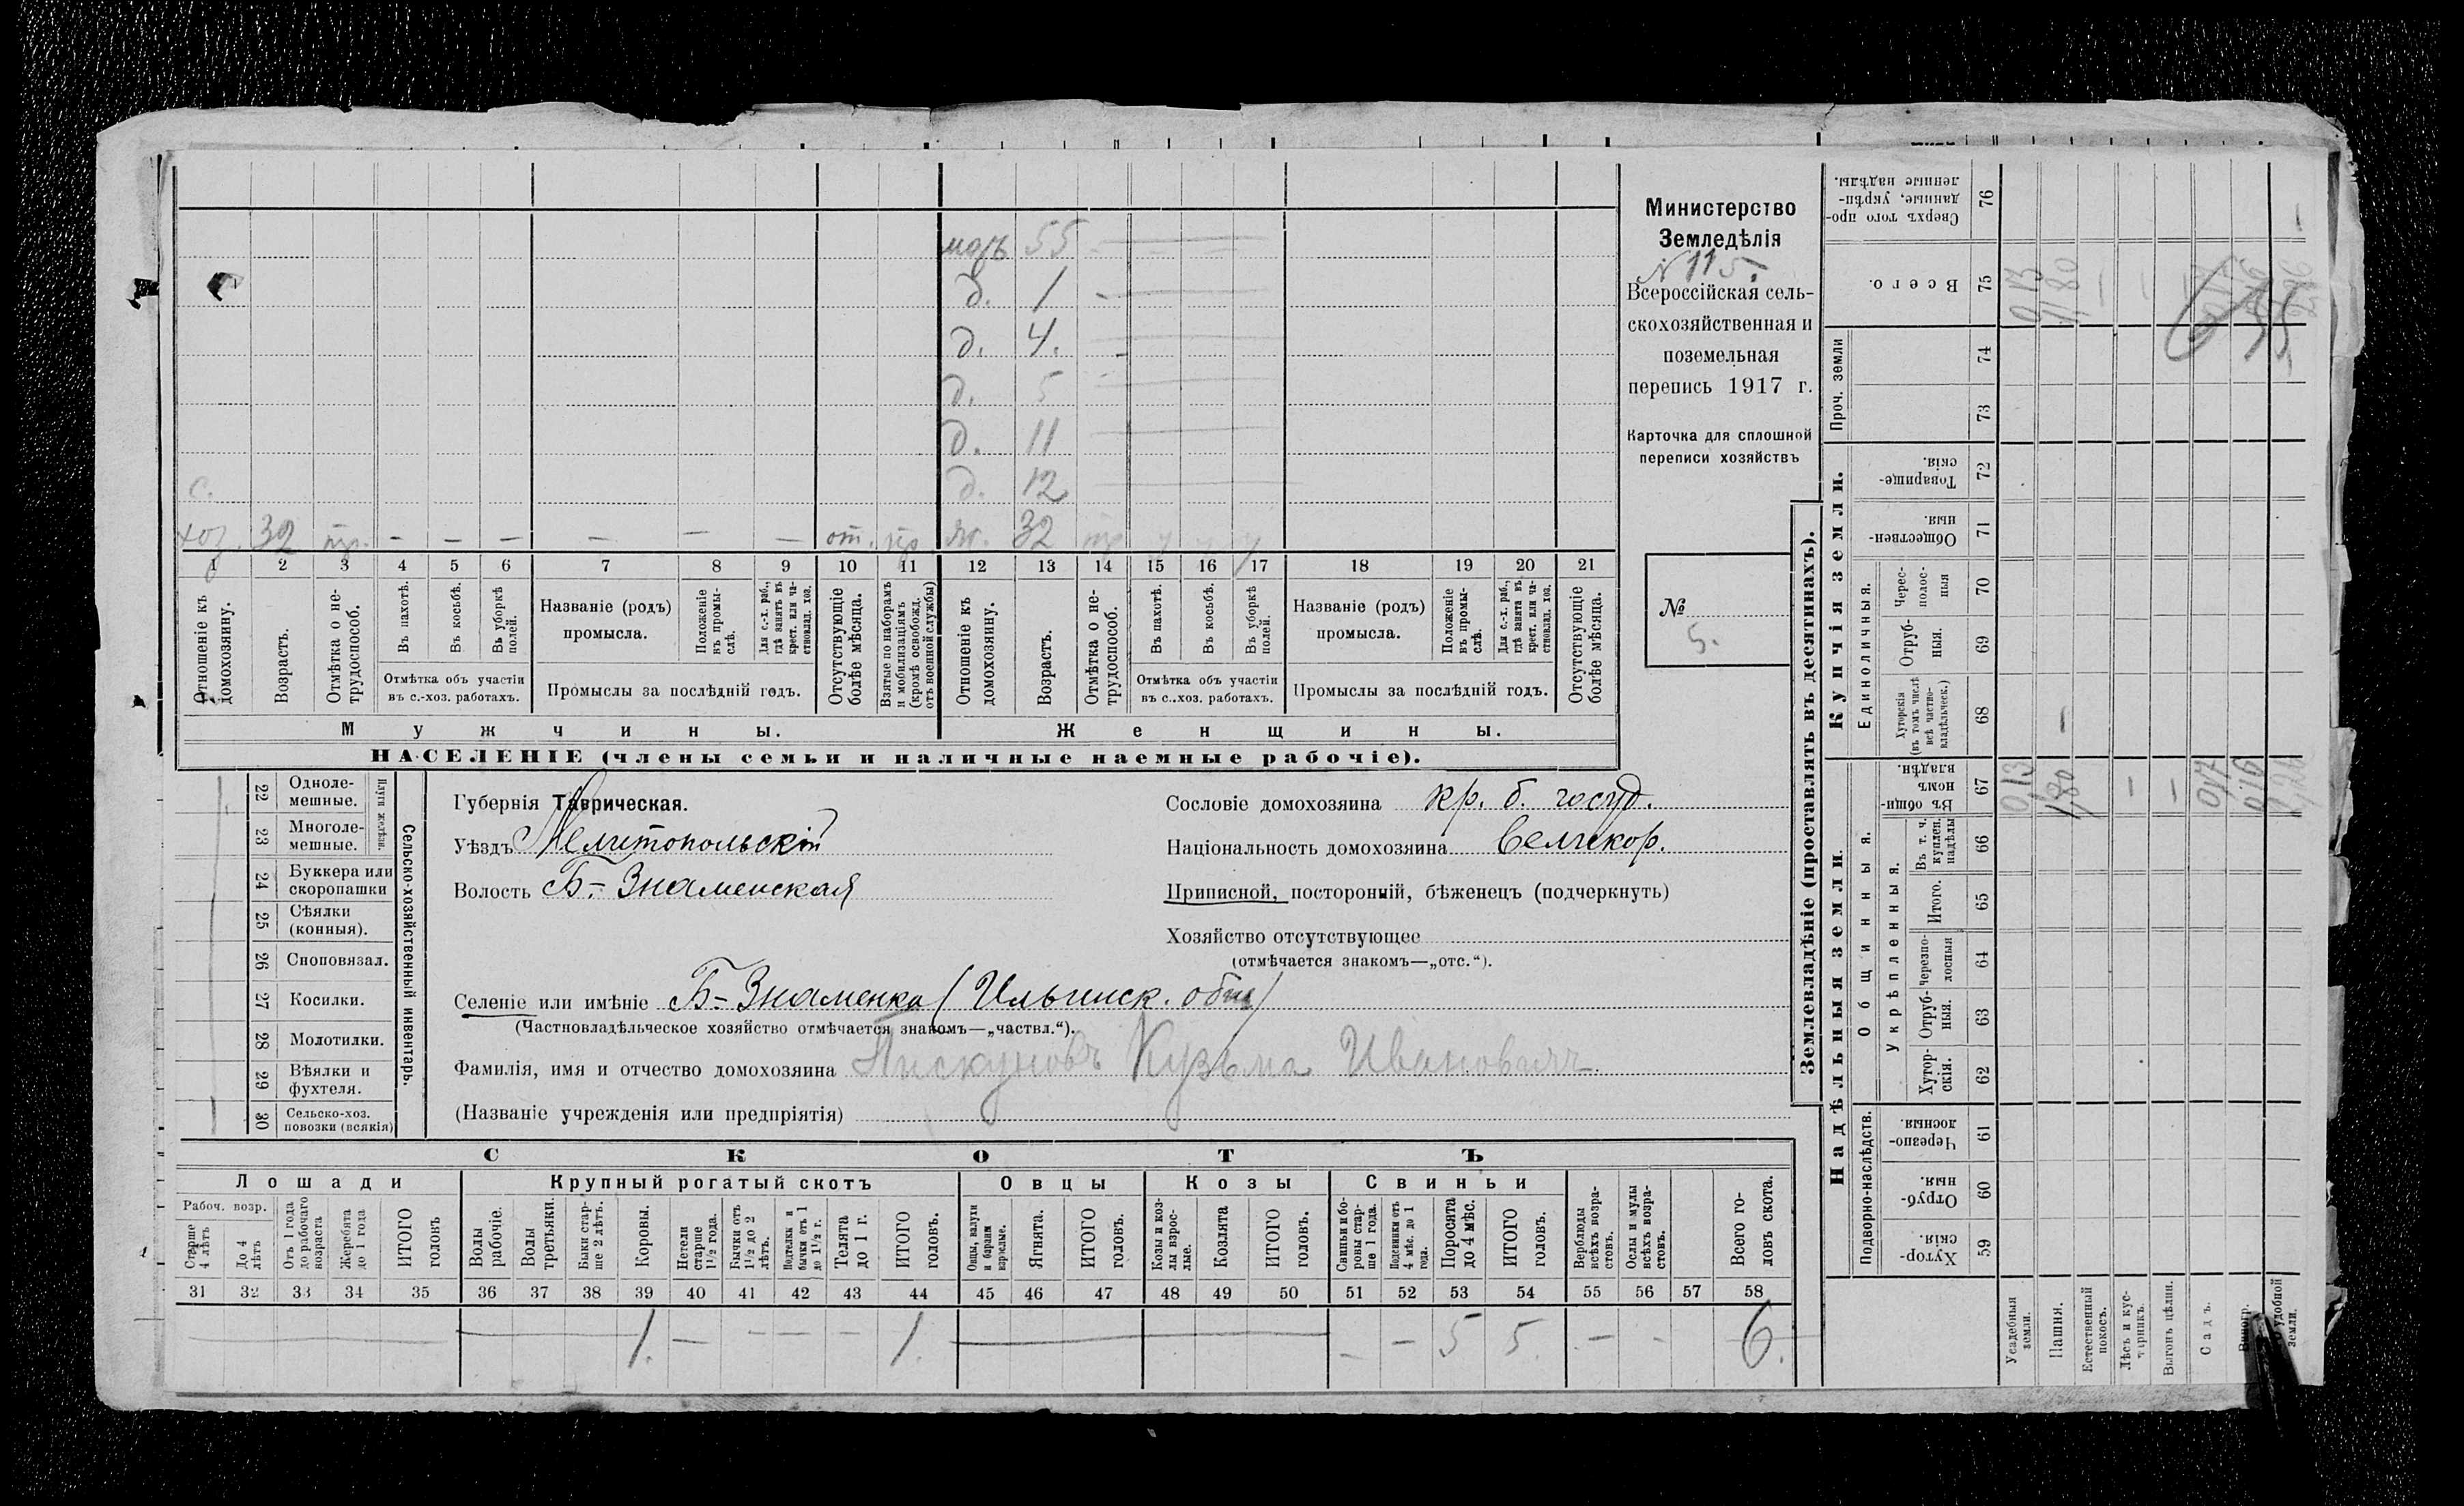 Министерство
Земледѣлія
N 115.
Всероссійская сель-
скохозяйственная и
поземельная
перепись 1917 г.
Карточка для сплошной
переписи хозяйствъ
№
5.
мать 55
д. 1
д. 4.
д. 5
д. 11
д. 12
с.
хоз. 32 — — — — — — от. ж. 32
1 2 3 4 5 6 7 8 9 10 11 12 13 14 15 16 17 18 19 20 21
Отношеніе къ домохозяину.
Возрастъ.
Отмѣтка о не-трудоспособ.
Въ пахотѣ.
Въ косьбѣ.
Въ уборкѣ полей.
Отмѣтка объ участіи
въ с.-хоз. работахъ.
Названіе (родъ)
промысла.
Положеніе въ промы-слѣ.
Для с.-х. раб., гдѣ занятъ въ крест. или ча-стновлад. хоз.
Промыслы за послѣдній годъ.
Отсутствующіе болѣе мѣсяца.
Взятые по наборамъ и мобилизаціямъ (кромѣ освобожд. отъ военной службы)
Отношеніе къ домохозяину.
Возрастъ.
Отмѣтка о не-трудоспособ.
Въ пахотѣ.
Въ косьбѣ.
Въ уборкѣ полей.
Отмѣтка объ участіи
въ с.-хоз. работахъ.
Названіе (родъ)
промысла.
Положеніе въ промы-слѣ.
Для с.-х. раб., гдѣ занята въ крест. или ча-стновлад. хоз.
Промыслы за послѣдній годъ.
Отсутствующіе болѣе мѣсяца.
Мужчины. Женщины.
НАСЕЛЕНІЕ (члены семьи и наличные наемные рабочіе).
22 Одноле-мешные.
23 Многоле-мешные.
Плуги желѣзн.
24 Буккера или скоропашки
25 Сѣялки (конныя).
26 Сноповязал.
27 Косилки.
28 Молотилки.
29 Вѣялки и фухтеля.
30 Сельско-хоз. повозки (всякія)
Сельско-хозяйственный инвентарь.
Губернія Таврическая.
Уѣздъ Мелитопольскій
Волость Б-Знаменская
Сословіе домохозяина кр. б. госуд.
Національность домохозяина Великор.
Приписной, посторонній, бѣженецъ (подчеркнуть)
Хозяйство отсутствующее
(отмѣчается знакомъ—„отс.“).
Селеніе или имѣніе Б-Знаменка (Ильинск. общ)
(Частновладѣльческое хозяйство отмѣчается знакомъ—„частвл.“).
Фамилія, имя и отчество домохозяина Пискуновъ Кузьма Ивановичъ
(Названіе учрежденія или предпріятія)
СКОТЪ
Лошади Крупный рогатый скотъ Овцы Козы Свиньи
Рабоч. возр.
Старше 4 лѣтъ
До 4 лѣтъ
Отъ 1 года до рабочаго возраста
Жеребята до 1 года
ИТОГО головъ
Волы рабочіе.
Волы третьяки.
Быки стар-ше 2 лѣтъ.
Коровы.
Нетели старше 1½ года.
Бычки отъ 1½ до 2 лѣтъ.
Подтелки и бычки отъ 1 до 1½ г.
Телята до 1 г.
ИТОГО головъ.
Овцы, валухи и бараны взрослые.
Ягнята.
ИТОГО головъ.
Козы и коз-лы взрос-лые.
Козлята
ИТОГО головъ.
Свиньи и бо-ровы стар-ше 1 года.
Подсвинки отъ 4 мѣс. до 1 года.
Поросята до 4 мѣс.
ИТОГО головъ.
Верблюды всѣхъ возра-стовъ.
Ослы и мулы всѣхъ возра-стовъ.
Всего го-ловъ скота.
31 32 33 34 35 36 37 38 39 40 41 42 43 44 45 46 47 48 49 50 51 52 53 54 55 56 57 58
1. — — — — 1. — — 5 5. — - 6.
Землевладѣніе (проставлять въ десятинахъ).
Надѣльныя земли. Купчія земли. Проч. земли
Подворно-наслѣдств. Общинныя. Укрѣпленныя. Единоличныя.
Хутор-скія. 59
Отруб-ныя. 60
Черезпо-лосныя. 61
Хутор-скія. 62
Отруб-ныя. 63
Черезпо-лосныя 64
Итого. 65
Въ т. ч. куплен. надѣлы 66
Въ общи-номъ владѣн. 67
Хуторскія (въ томъ числѣ всѣ частно-владѣльческ.) 68
Отруб-ныя. 69
Черес-полос-ныя 70
Обществен-ныя. 71
Товарище-скія. 72
73
74
Всего. 75
Сверхъ того про-данные, укрѣп-ленные надѣлы. 76
Усадебныя земли.
Пашня.
Естественный покосъ.
Лѣсъ и кус-тарникъ.
Выгонъ цѣлин.
Садъ.
удобной земли.